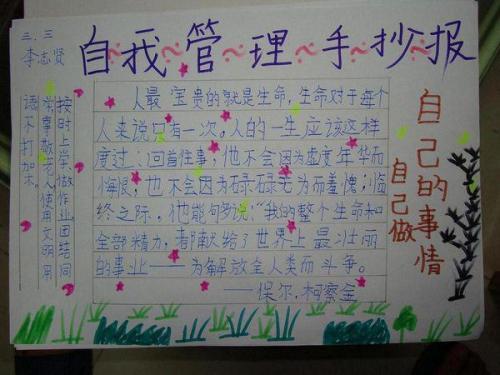 三.三
李志贤
自我管理手抄报
按时上学做作业团结同
学尊敬老人使用文明用
语不打架
人最宝贵的就是生命，生命对于每个
人来说只有一次。人的一生应该这样
度过：回首往事，他不会因为虚度年华而
悔恨，也不会因为碌碌无为而羞愧；临
终之际，他能够说：“我的整个生命和
全部精力，都献给了世界上最壮丽
的事业——为解放全人类而斗争。
——保尔.柯察金
自己的事情
自己做